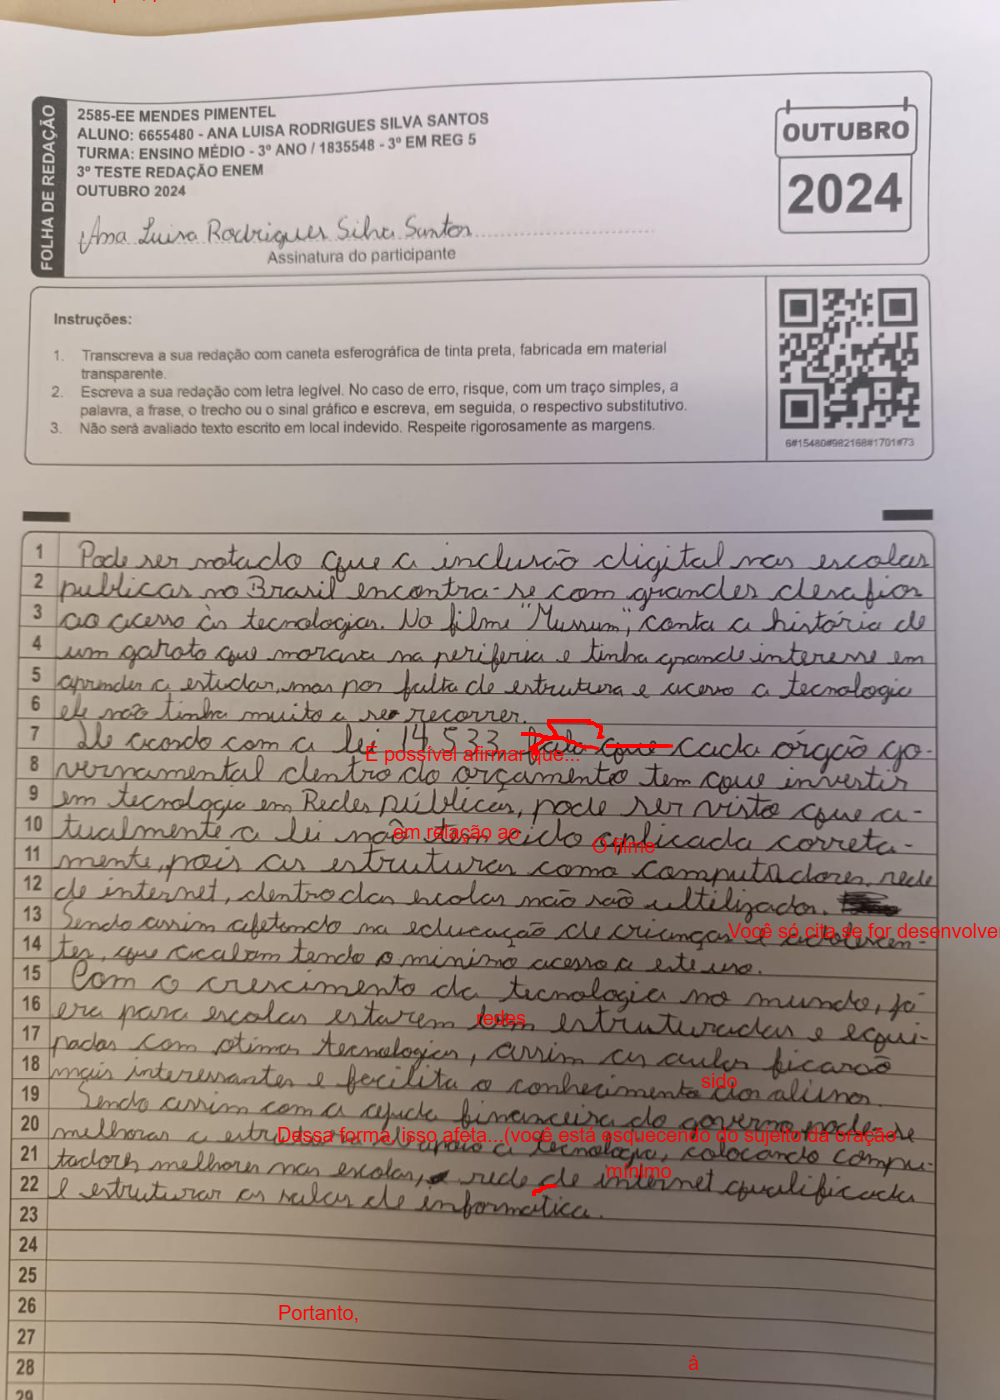 FOLHA DE REDAÇÃO
2585-EE MENDES PIMENTEL
ALUNO: 6655480 - ANA LUISA RODRIGUES SILVA SANTOS
TURMA: ENSINO MÉDIO - 3º ANO / 1835548 - 3º EM REG 5
3º TESTE REDAÇÃO ENEM
OUTUBRO 2024
Ana Luisa Rodrigues Silva Santos
Assinatura do participante
OUTUBRO
2024
Instruções:
1. Transcreva a sua redação com caneta esferográfica de tinta preta, fabricada em material
transparente.
2. Escreva a sua redação com letra legível. No caso de erro, risque, com um traço simples, a
palavra, a frase, o trecho ou o sinal gráfico e escreva, em seguida, o respectivo substitutivo.
3. Não será avaliado texto escrito em local indevido. Respeite rigorosamente as margens.
6#15480#982168#1701#73
1 Pode ser notado que a inclusão digital nas escolas
2 publicas no Brasil encontra-se com grandes desafios
3 ao acesso às tecnologias. No filme "Mussum", conta a história de
4 um garoto que morava na periferia e tinha grande interesse em
5 aprender a estudar, mas por falta de estrutura e acesso a tecnologia
6 ele não tinha muito a se recorrer.
7 De acordo com a lei 14.533 que cada órgão go-
É possível afirmar que...
8 vernamental dentro do orçamento tem que investir
9 em tecnologia em Redes públicas, pode ser visto que a-
10 tualmente a lei não tem cido aplicada correta-
em relação ao
O filme
11 mente, pois as estruturas como computadores, rede
12 de internet, dentro das escolas não são ultilizados.
13 Sendo assim afetando na educação de crianças e adolescen-
Você só cita se for desenvolve
14 tes, que acabam tendo o minimo acesso a este uso.
15 Com o crescimento da tecnologia no mundo, já
16 era para escolas estarem bem estruturadas e equi-
redes
17 padas com otimas tecnologias, assim as aulas ficarão
18 mais interessantes e facilita o conhecimento dos alunos.
sido
19 Sendo assim com a ajuda financeira do governo pode-se
20 melhorar a estrutura e apoio a tecnologia, colocando compu-
Dessa forma, isso afeta...(você está esquecendo do sujeito da oração
21 tadores melhores nas escolas, rede de internet qualificada
mínimo
22 e estruturar as salas de informatica.
23
24
25
26
Portanto,
27
28
à
29